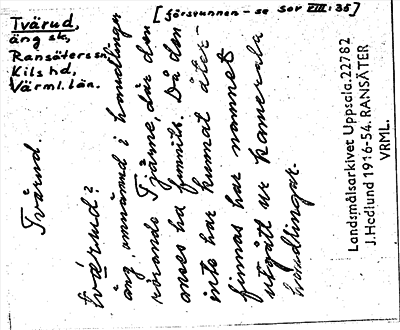 Tvärud,
äng sk,
Ransäters sn
Kils hd,
Värml. län.
[försvunnen – se Sor VIII: 35]
Tvärud.
tværud?
äng, omnämnd i handlingar
rörande Tjärne, där den
anses ha funnits. Då den
inte har kunnat åter-
finnas har namnet
utgått ur kamerala
handlingar.
Landsmålsarkivet Uppsala. 22782
J. Hedlund 1916-54. RANSÄTER
VRML.